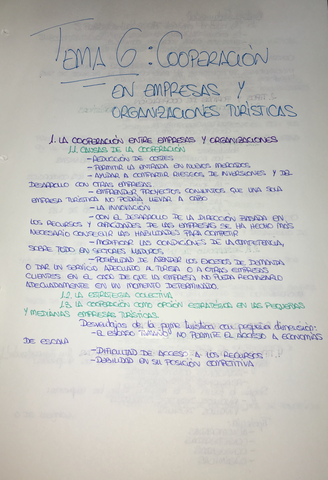 TEMA 6: COOPERACIÓN
EN EMPRESAS Y
ORGANIZACIONES TURÍSTICAS
1. LA COOPERACIÓN ENTRE EMPRESAS Y ORGANIZACIONES
1.1. CAUSAS DE LA COOPERACIÓN
- REDUCCIÓN DE COSTES
- PERMITIR LA ENTRADA EN NUEVOS MERCADOS
- AYUDAR A COMPARTIR RIESGOS DE INVERSIONES Y DEL
DESARROLLO CON OTRAS EMPRESAS
- EMPRENDER PROYECTOS CONJUNTOS QUE UNA SOLA
EMPRESA TURÍSTICA NO PODRÍA LLEVAR A CABO
- LA INNOVACIÓN
- CON EL DESARROLLO DE LA DIRECCIÓN BASADA EN
LOS RECURSOS Y CAPACIDADES DE LAS EMPRESAS SE HA HECHO MÁS
NECESARIO CONSEGUIR LAS HABILIDADES PARA COMPETIR
- MODIFICAR LAS CONDICIONES DE LA COMPETENCIA,
SOBRE TODO EN SECTORES MADUROS
- POSIBILIDAD DE ATENDER LOS EXCESOS DE DEMANDA
O DAR UN SERVICIO ADECUADO AL TURISTA O A OTRAS EMPRESAS
CLIENTES EN EL CASO DE QUE LA EMPRESA NO PUEDA REALIZARLO
ADECUADAMENTE EN UN MOMENTO DETERMINADO.
1.2. LA ESTRATEGIA COLECTIVA
1.3. LA COOPERACIÓN COMO OPCIÓN ESTRATÉGICA EN LAS PEQUEÑAS
Y MEDIANAS EMPRESAS TURÍSTICAS.
Desventajas de la pyme turística con pequeña dimensión:
- EL ESCASO TAMAÑO NO PERMITE EL ACCESO A ECONOMÍAS
DE ESCALA
- DIFICULTAD DE ACCESO A LOS RECURSOS
- DEBILIDAD EN SU POSICIÓN COMPETITIVA